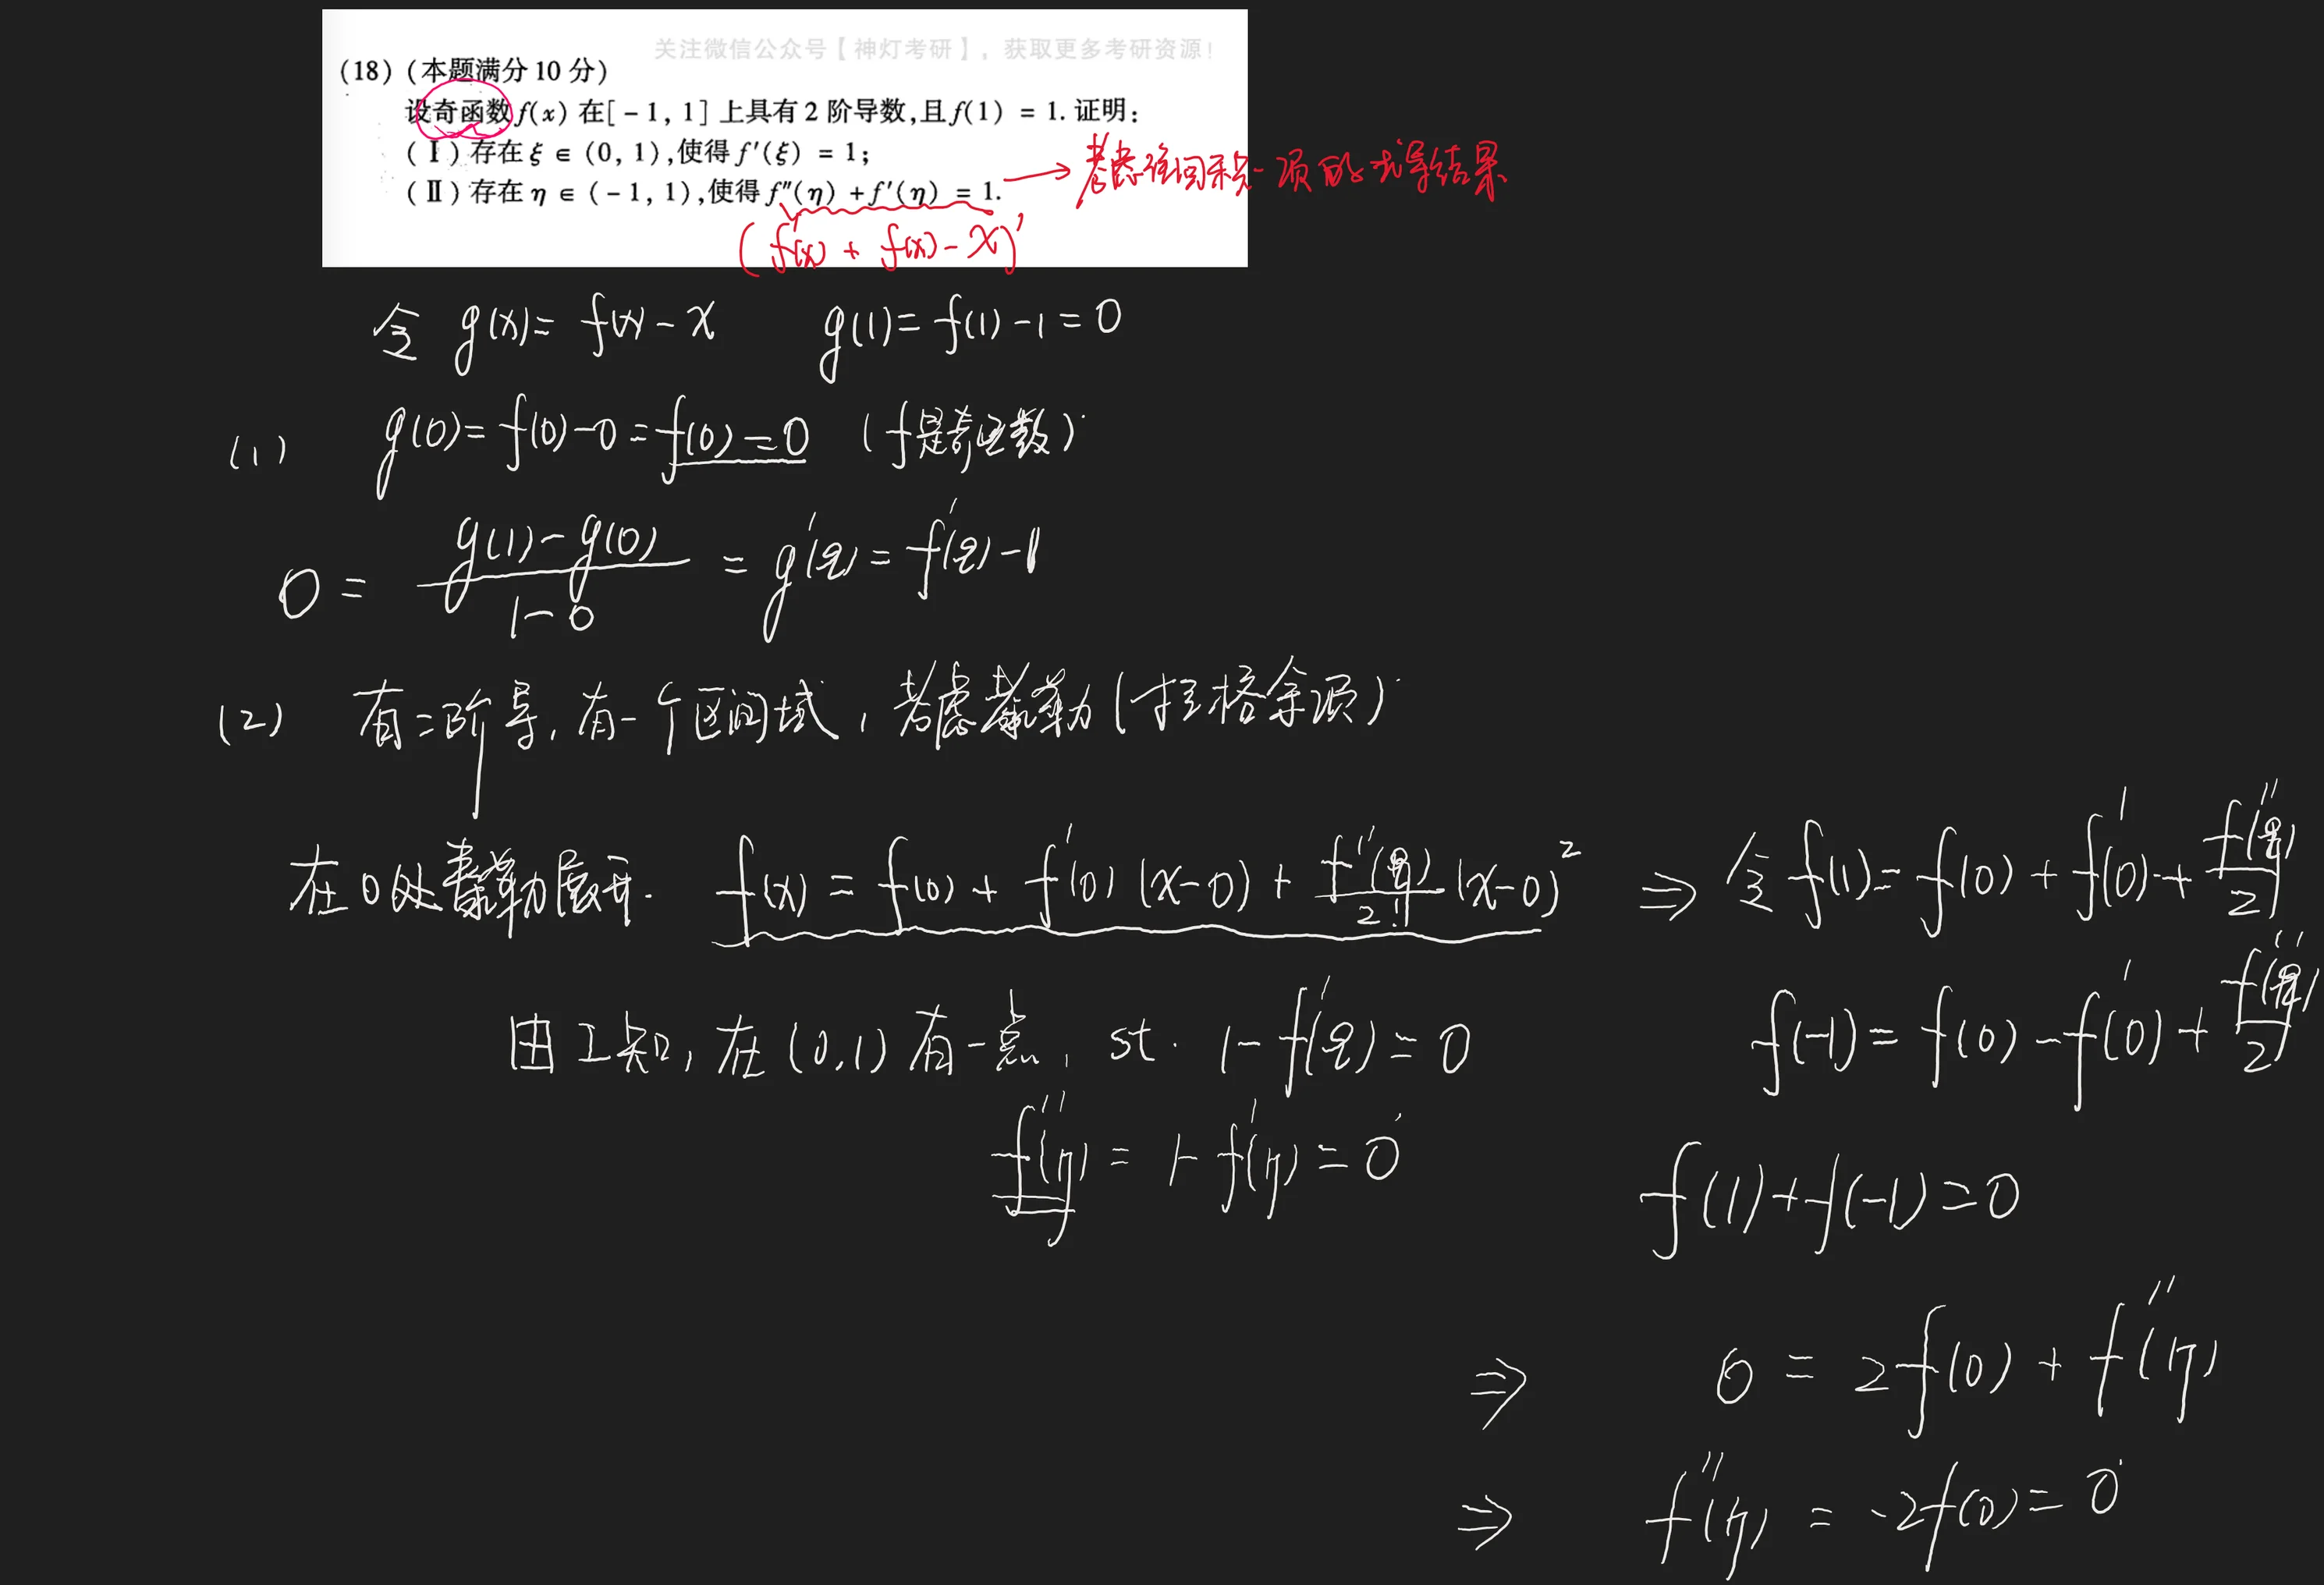 关注微信公众号【神灯考研】，获取更多考研资源！
(18) (本题满分 10 分)
设奇函数 f(x) 在[-1, 1] 上具有 2 阶导数,且 f(1) = 1. 证明:
(Ⅰ) 存在 ξ ∈ (0, 1),使得 f′(ξ) = 1;
(Ⅱ) 存在 η ∈ (-1, 1),使得 f″(η) + f′(η) = 1.
→ 考虑 一项的求导结果
(f′(x) + f(x) - x)′
令 g(x) = f(x) - x g(1) = f(1) - 1 = 0
(1) g(0) = f(0) - 0 = f(0) = 0 (f是奇函数)
0 = \frac{g(1) - g(0)}{1 - 0} = g′(ξ) = f′(ξ) - 1
(2) 有二阶导, 有一个区间域, 考虑泰勒(拉格余项)
在0处泰勒展开. f(x) = f(0) + f′(0)(x-0) + \frac{f″(η)}{2!}(x-0)² ⇒ 令 f(1) = f(0) + f′(0) + \frac{f″(η)}{2}
f(-1) = f(0) - f′(0) + \frac{f″(η)}{2}
由I知, 在(0,1)有一点, st. 1 - f′(ξ) = 0
f″(η) = 1 - f′(η) = 0
f(1) + f(-1) = 0
⇒ 0 = 2f(0) + f″(η)
⇒ f″(η) = -2f(0) = 0